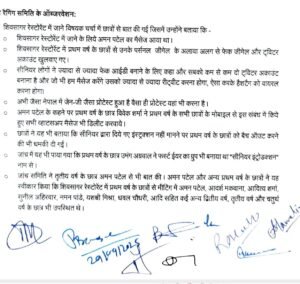 रैगिंग समिति के ऑब्जरवेशन:
शिवसागर रेस्टोरेंट में जाने विषयक चर्चा में छात्रों से बात की गई जिसमें उन्होंने बताया कि -
शिवसागर रेस्टोरेंट में जाने के लिये अमन पटेल का मैसेज आया था।
शिवसागर रेस्टोरेंट में प्रथम वर्ष के छात्रों से उनके पर्सनल जीमेल के अलावा अलग से फेक जीमेल और ट्विटर
अकाउंट खुलवाए गए।
सीनियर लोगों ने ज्यादा से ज्यादा फेक आईडी बनाने के लिए कहा और सबको कम से कम दो ट्विटर अकाउंट
बनाना है और जो भी हम मैसेज करेंगे उसको ज्यादा से ज्यादा रीट्वीट करना होगा, ऐसा करके हैशटैग को वायरल
करना होगा।
अभी जैसा नेपाल में जेन-जी जैसा प्रोटेस्ट हुआ है वैसा ही प्रोटेस्ट यहां भी करना है।
अमन पटेल के कहने पर प्रथम वर्ष के छात्र विवेक शर्मा ने प्रथम वर्ष के सभी छात्रों के मोबाइल से इस संबंध में किये
हुए सभी व्हाटसअप मैसेज भी डिलीट करवाये।
छात्रों ने यह भी बताया कि सीनियर द्वारा दिये गए इंस्ट्रक्शन नहीं मानने पर प्रथम वर्ष के छात्रों को बैच ऑउट करने
की भी धमकी दी गई।
जांच में यह भी पाया गया कि प्रथम वर्ष के छात्र उमंग अग्रवाल ने फर्स्ट ईयर का ग्रुप भी बनाया था "सीनियर इंट्रोडक्शन"
नाम से।
जांच समिति ने तृतीय वर्ष के छात्र अमन पटेल से भी बात की। अमन पटेल और अन्य प्रथम वर्ष के छात्रों ने यह
स्वीकार किया कि शिवसागर रेस्टोरेंट में प्रथम वर्ष के छात्रों से मीटिंग में अमन पटेल, आदर्श मकवाना, आदित्य शर्मा,
सुनील अहिरवार, नमन पांडे, यशश्री मिश्रा, धवल चौधरी, आदि सहित कई अन्य द्वितीय वर्ष, तृतीय वर्ष और चतुर्थ
वर्ष के छात्र भी उपस्थित थे।